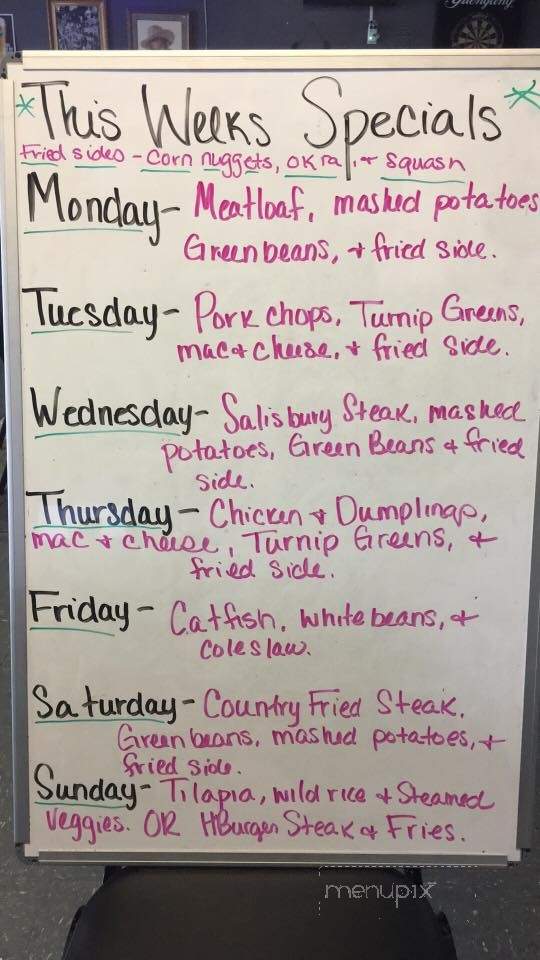 Yuengling
*This Weeks Specials*
Fried sides - Corn nuggets, okra, + squash
Monday - Meatloaf, mashed potatoes
Green beans, + fried side.
Tuesday - Pork chops, Turnip Greens,
mac + cheese, + fried side.
Wednesday - Salisbury Steak, mashed
potatoes, Green Beans + fried
side.
Thursday - Chicken + Dumplings,
mac + cheese, Turnip Greens, +
fried side.
Friday - Catfish, white beans, +
coleslaw.
Saturday - Country Fried Steak,
Green beans, mashed potatoes, +
fried side.
Sunday - Tilapia, wild rice + Steamed
Veggies. OR HBurger Steak + Fries.
menupix